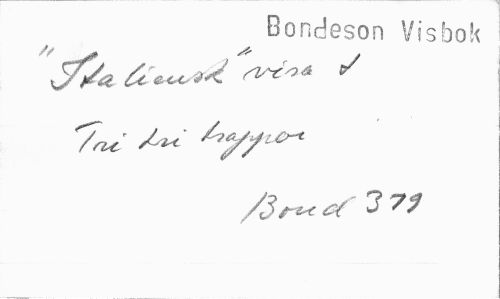 Bondeson Visbok
"Italiensk" visa
Tri tri
Bond 379